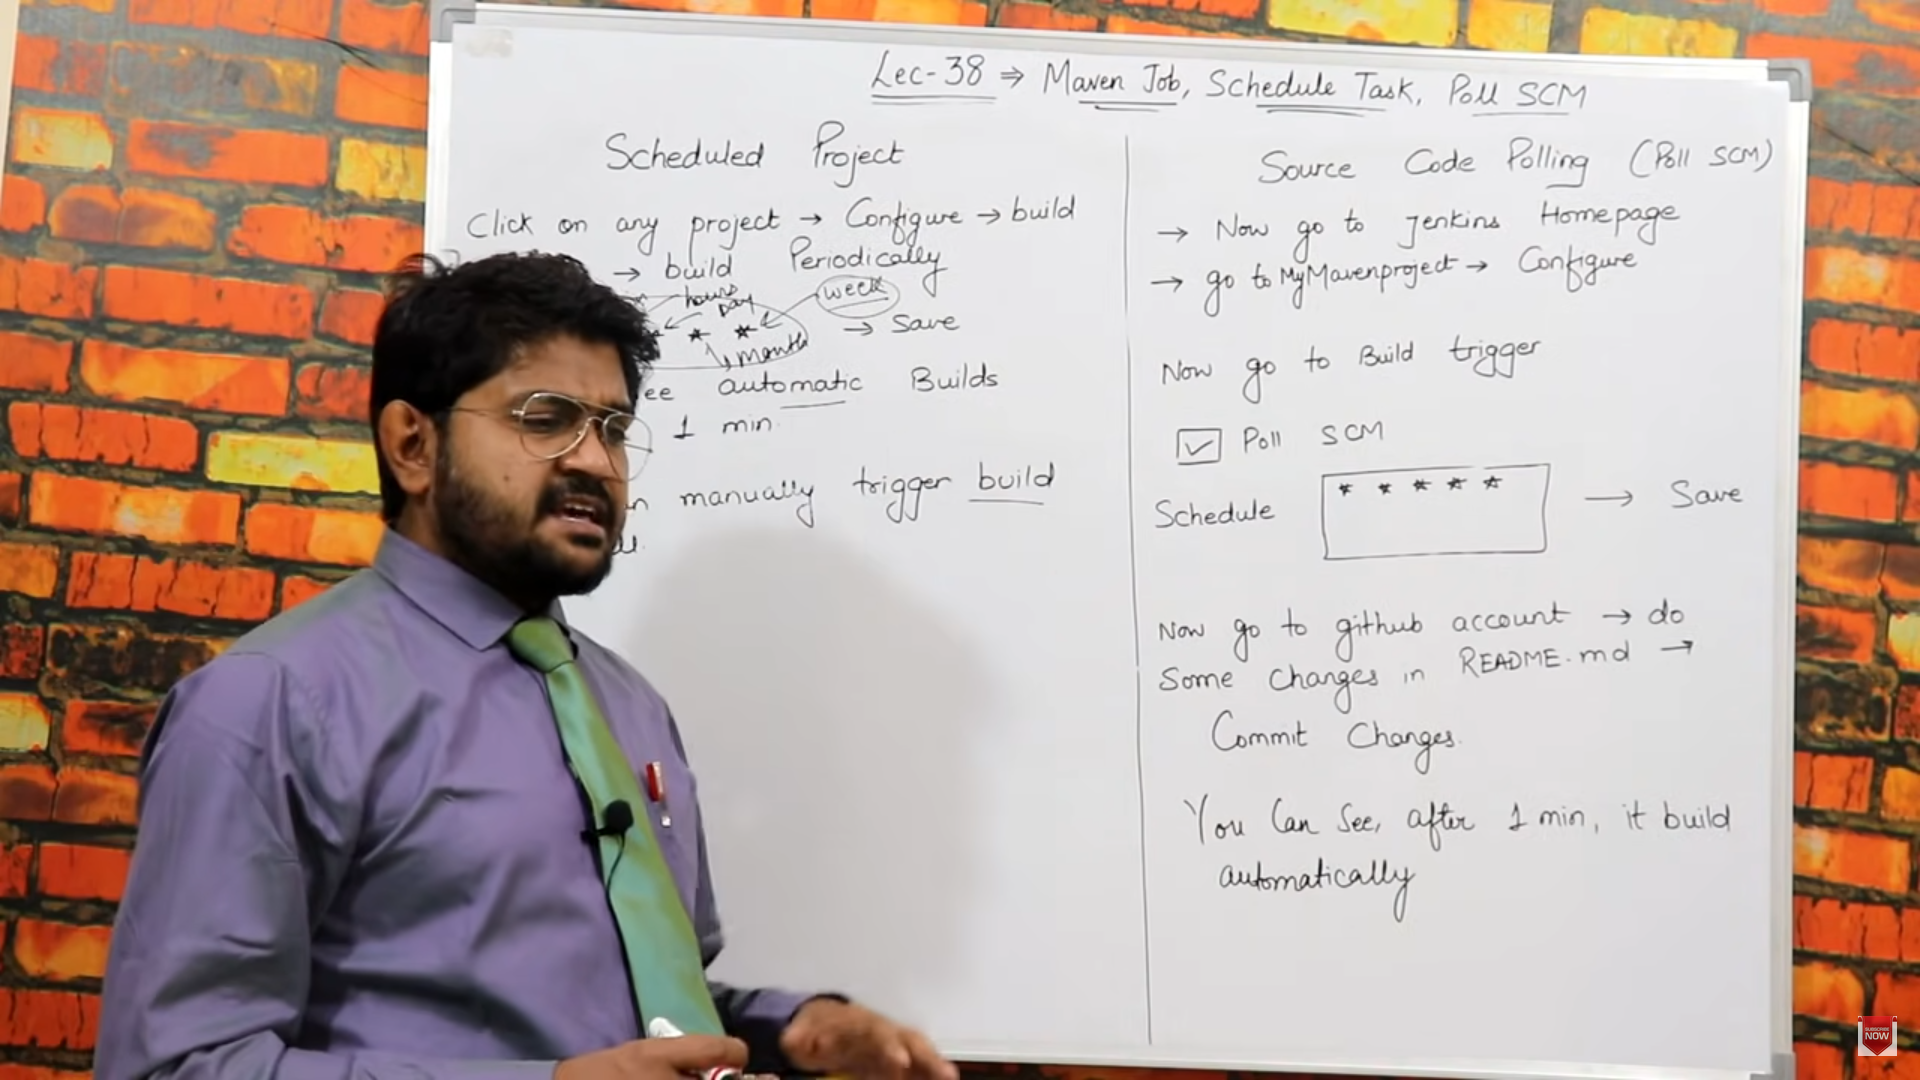 Lec-38 ⇒ Maven Job, Schedule Task, Poll SCM
Scheduled Project
Click on any project → Configure → build
→ build Periodically
hours
Day
week
* *
month
→ Save
automatic Builds
1 min.
manually trigger build
Source Code Polling (Poll SCM)
→ Now go to Jenkins Homepage
→ go to MyMavenproject → Configure
Now go to Build trigger
☑ Poll SCM
Schedule * * * * * → Save
Now go to github account → do
Some Changes in README.md →
Commit Changes.
You Can See, after 1 min, it build
automatically
SUBSCRIBE
NOW